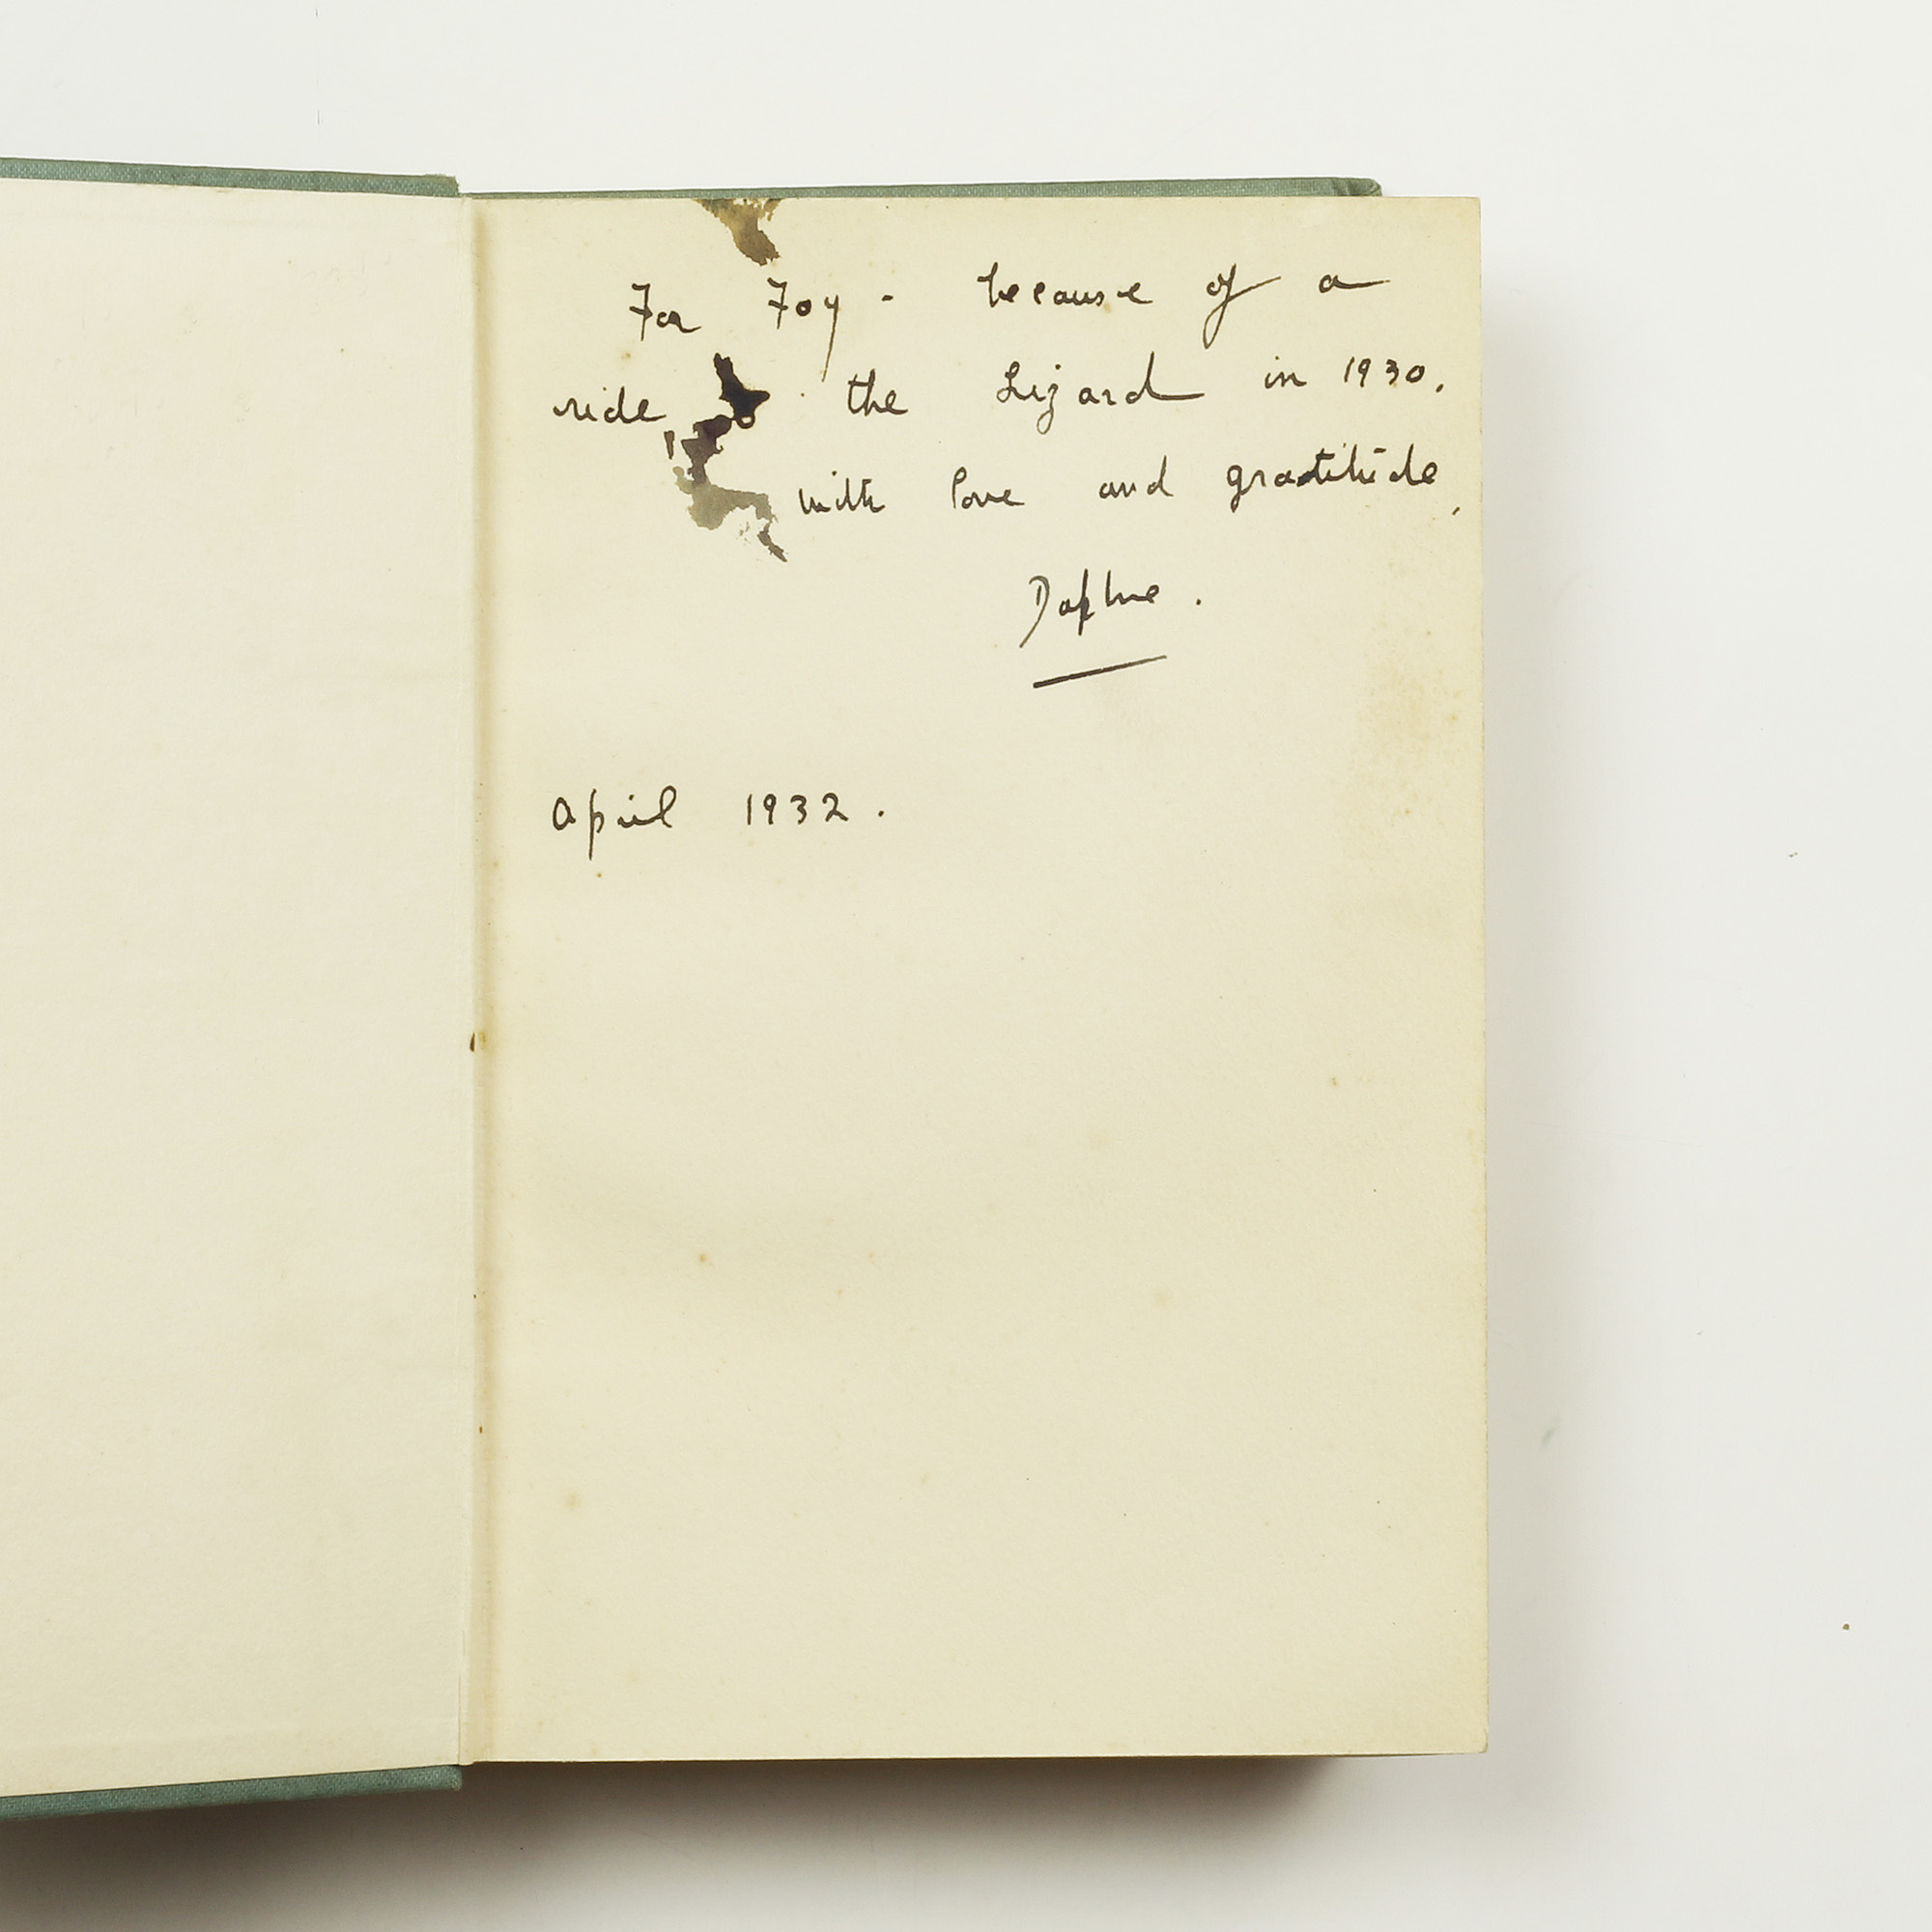 For Foy - because of a
ride the Lizard in 1930.
with love and gratitude,
Daphne.
April 1932.